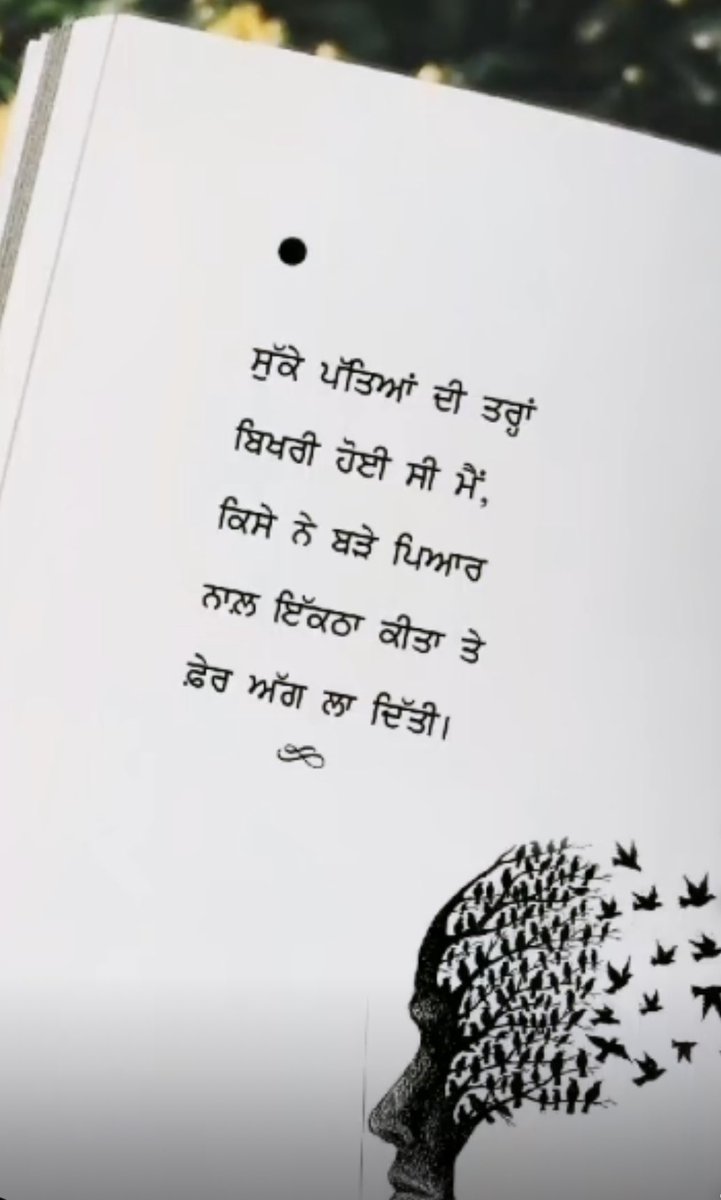 ਸੁੱਕੇ ਪੱਤਿਆਂ ਦੀ ਤਰ੍ਹਾਂ
ਬਿਖਰੀ ਹੋਈ ਸੀ ਮੈਂ,
ਕਿਸੇ ਨੇ ਬੜੇ ਪਿਆਰ
ਨਾਲ਼ ਇੱਕਠਾ ਕੀਤਾ ਤੇ
ਫ਼ੇਰ ਅੱਗ ਲਾ ਦਿੱਤੀ।